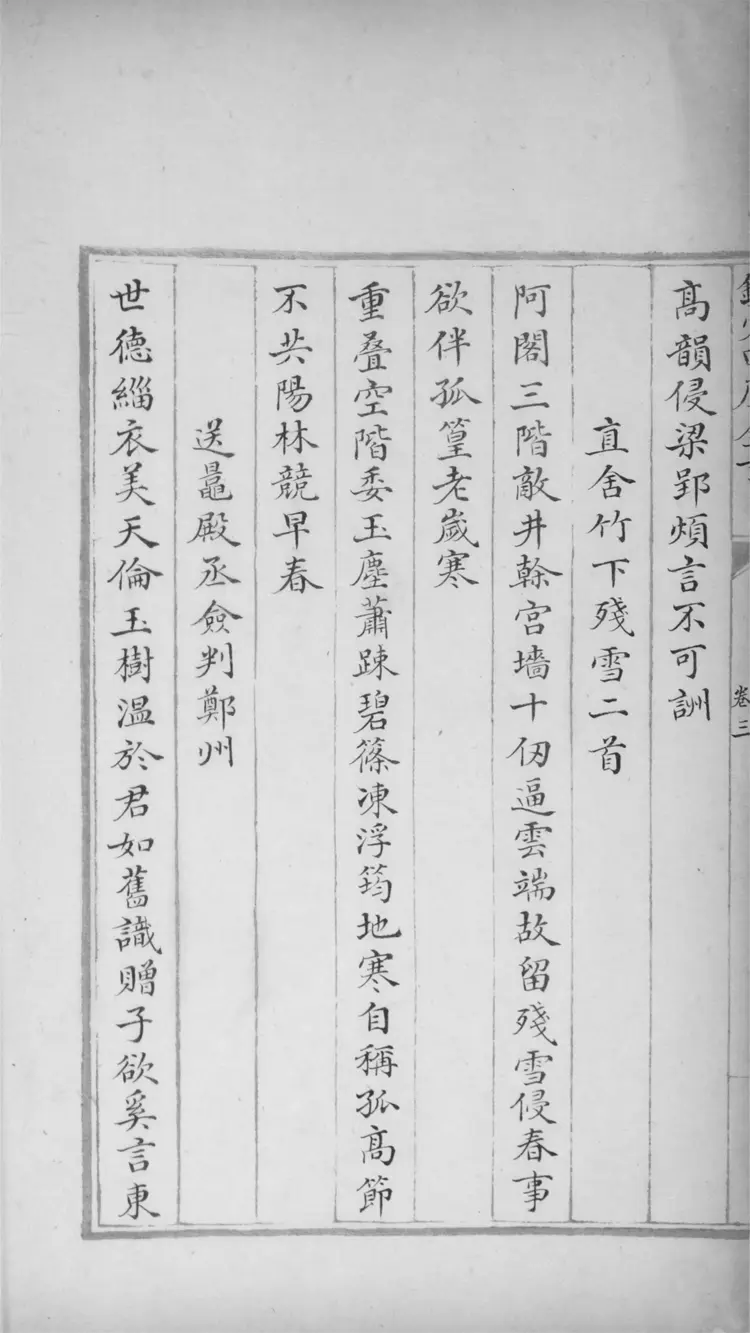 卷三
高韻侵梁郢煩言不可詶
直舍竹下殘雪二首
阿閣三階敵井榦宮墻十仞逼雲端故留殘雪侵春事
欲伴孤篁老嵗寒
重疊空階委玉塵蕭踈碧篠凍浮筠地寒自稱孤高節
不共陽林競早春
送鼂殿丞僉判鄭州
世德緇衣美天倫玉樹温於君如舊識贈子欲奚言東